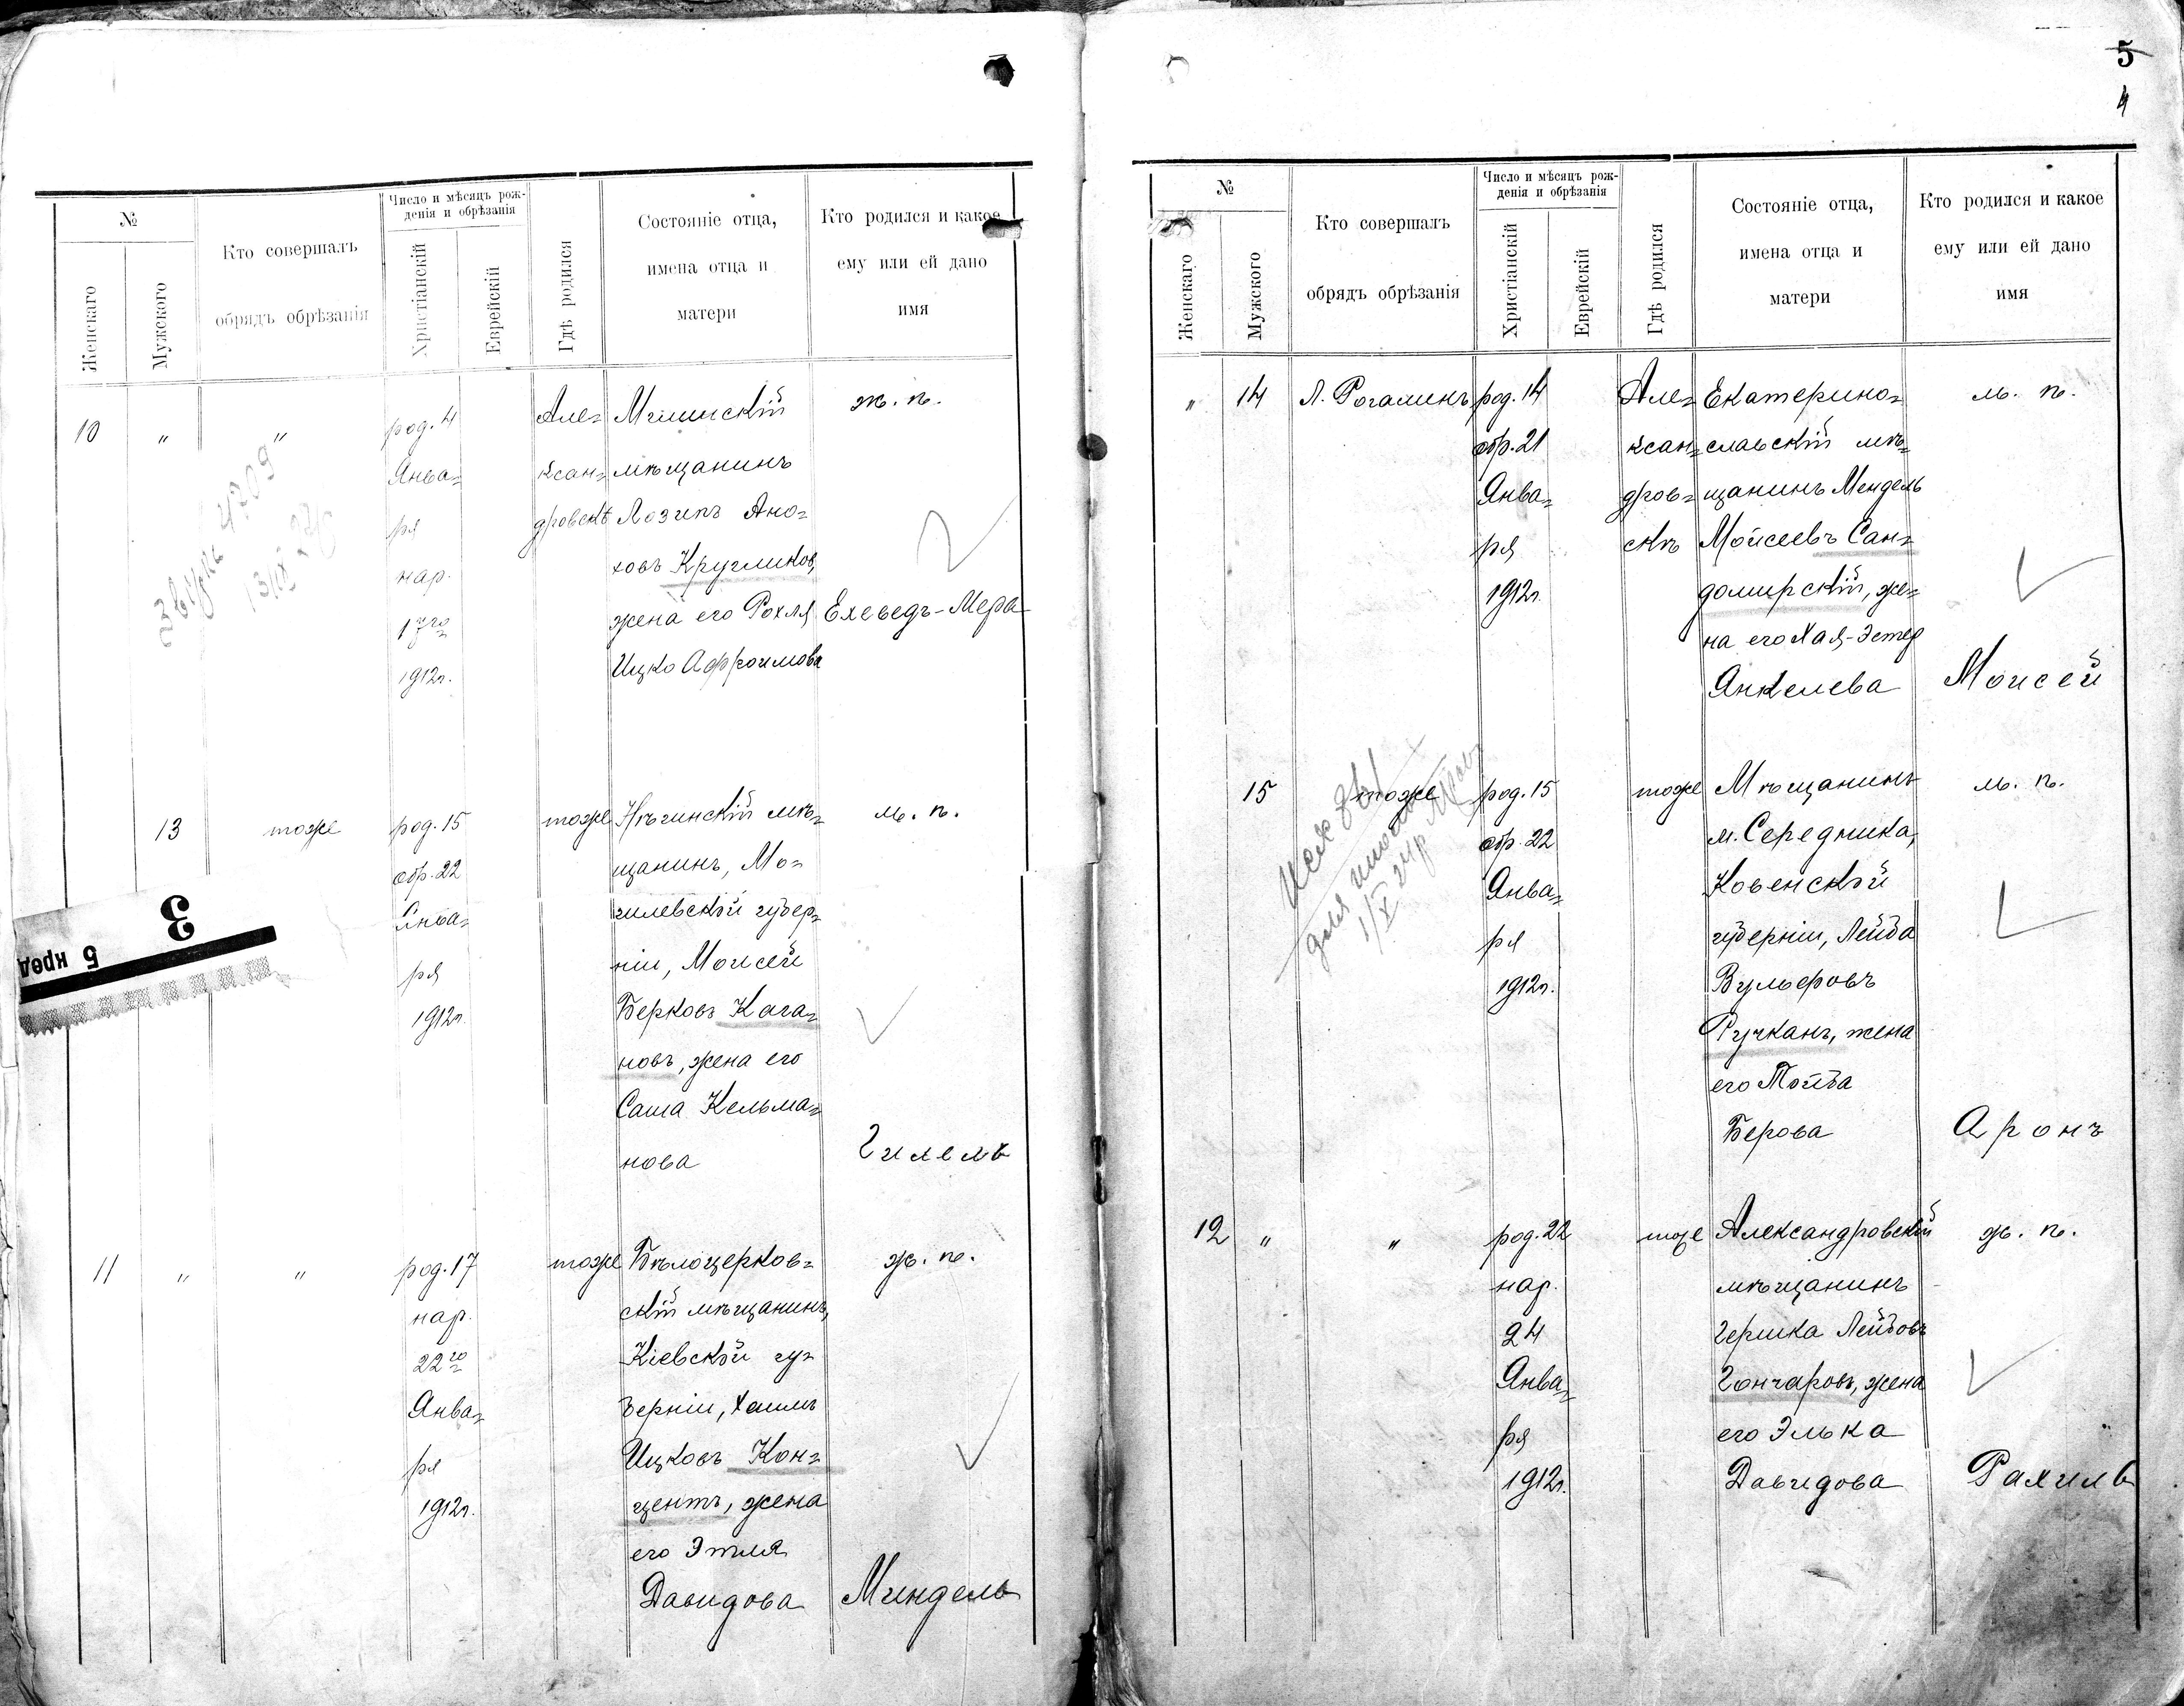 №
Женскаго
Мужского
Кто совершалъ
обрядъ обрѣзанія
Число и мѣсяцъ рож-
денія и обрѣзанія
Христіанскій
Еврейскій
Гдѣ родился
Состояніе отца,
имена отца и
матери
Кто родился и какое
ему или ей дано
имя
10
"
"
род. 4
Янва=
ря
нар.
17го
1912г.
Але=
ксан=
дровскѣ
мѣщанинъ
ховъ Кругликов,
жена его Рохля
Ицко Афроимова
ж. п.
Ехевед-Мера
13
тоже
род. 15
обр. 22
Янва=
ря
1912г.
тоже
мѣ=
щанинъ, Мо=
гилевской губер=
ніи, Моисей
Берковъ Кага=
новъ, жена его
Саша Кельма=
нова
м. п.
Гилель
3
5 кред
11
"
"
род. 17
нар.
22го
Янва=
ря
1912г.
тоже
Бѣлоцерков=
скій мѣщанинъ,
Кіевской гу=
берніи, Хаимъ
Ицковъ Кон=
центъ, жена
его Этля
Давидова
ж. п.
Миндель
5
4
№
Женскаго
Мужского
Кто совершалъ
обрядъ обрѣзанія
Число и мѣсяцъ рож-
денія и обрѣзанія
Христіанскій
Еврейскій
Гдѣ родился
Состояніе отца,
имена отца и
матери
Кто родился и какое
ему или ей дано
имя
"
14
Л. Рогалинъ
род. 14
обр. 21
Янва=
ря
1912г.
Але=
ксан=
дров=
скѣ
Екатерино=
славскій мѣ=
щанинъ Мендель
Мойсеевъ Сан=
домирскій, же=
на его Хая-Эстер
Анкелева
м. п.
Моисей
15
тоже
род. 15
обр. 22
Янва=
ря
1912г.
тоже
Мѣщанинъ
м. Середника,
Ковенской
губерніи, Лейба
Вульфовъ
Ручканъ, жена
его Тойба
Берова
м. п.
Аронъ
12
"
"
род. 22
нар.
24
Янва=
ря
1912г.
тоже
Александровскій
мѣщанинъ
Гершка Лейбовъ
Гончаровъ, жена
его Элька
Давидова
ж. п.
Рахиль